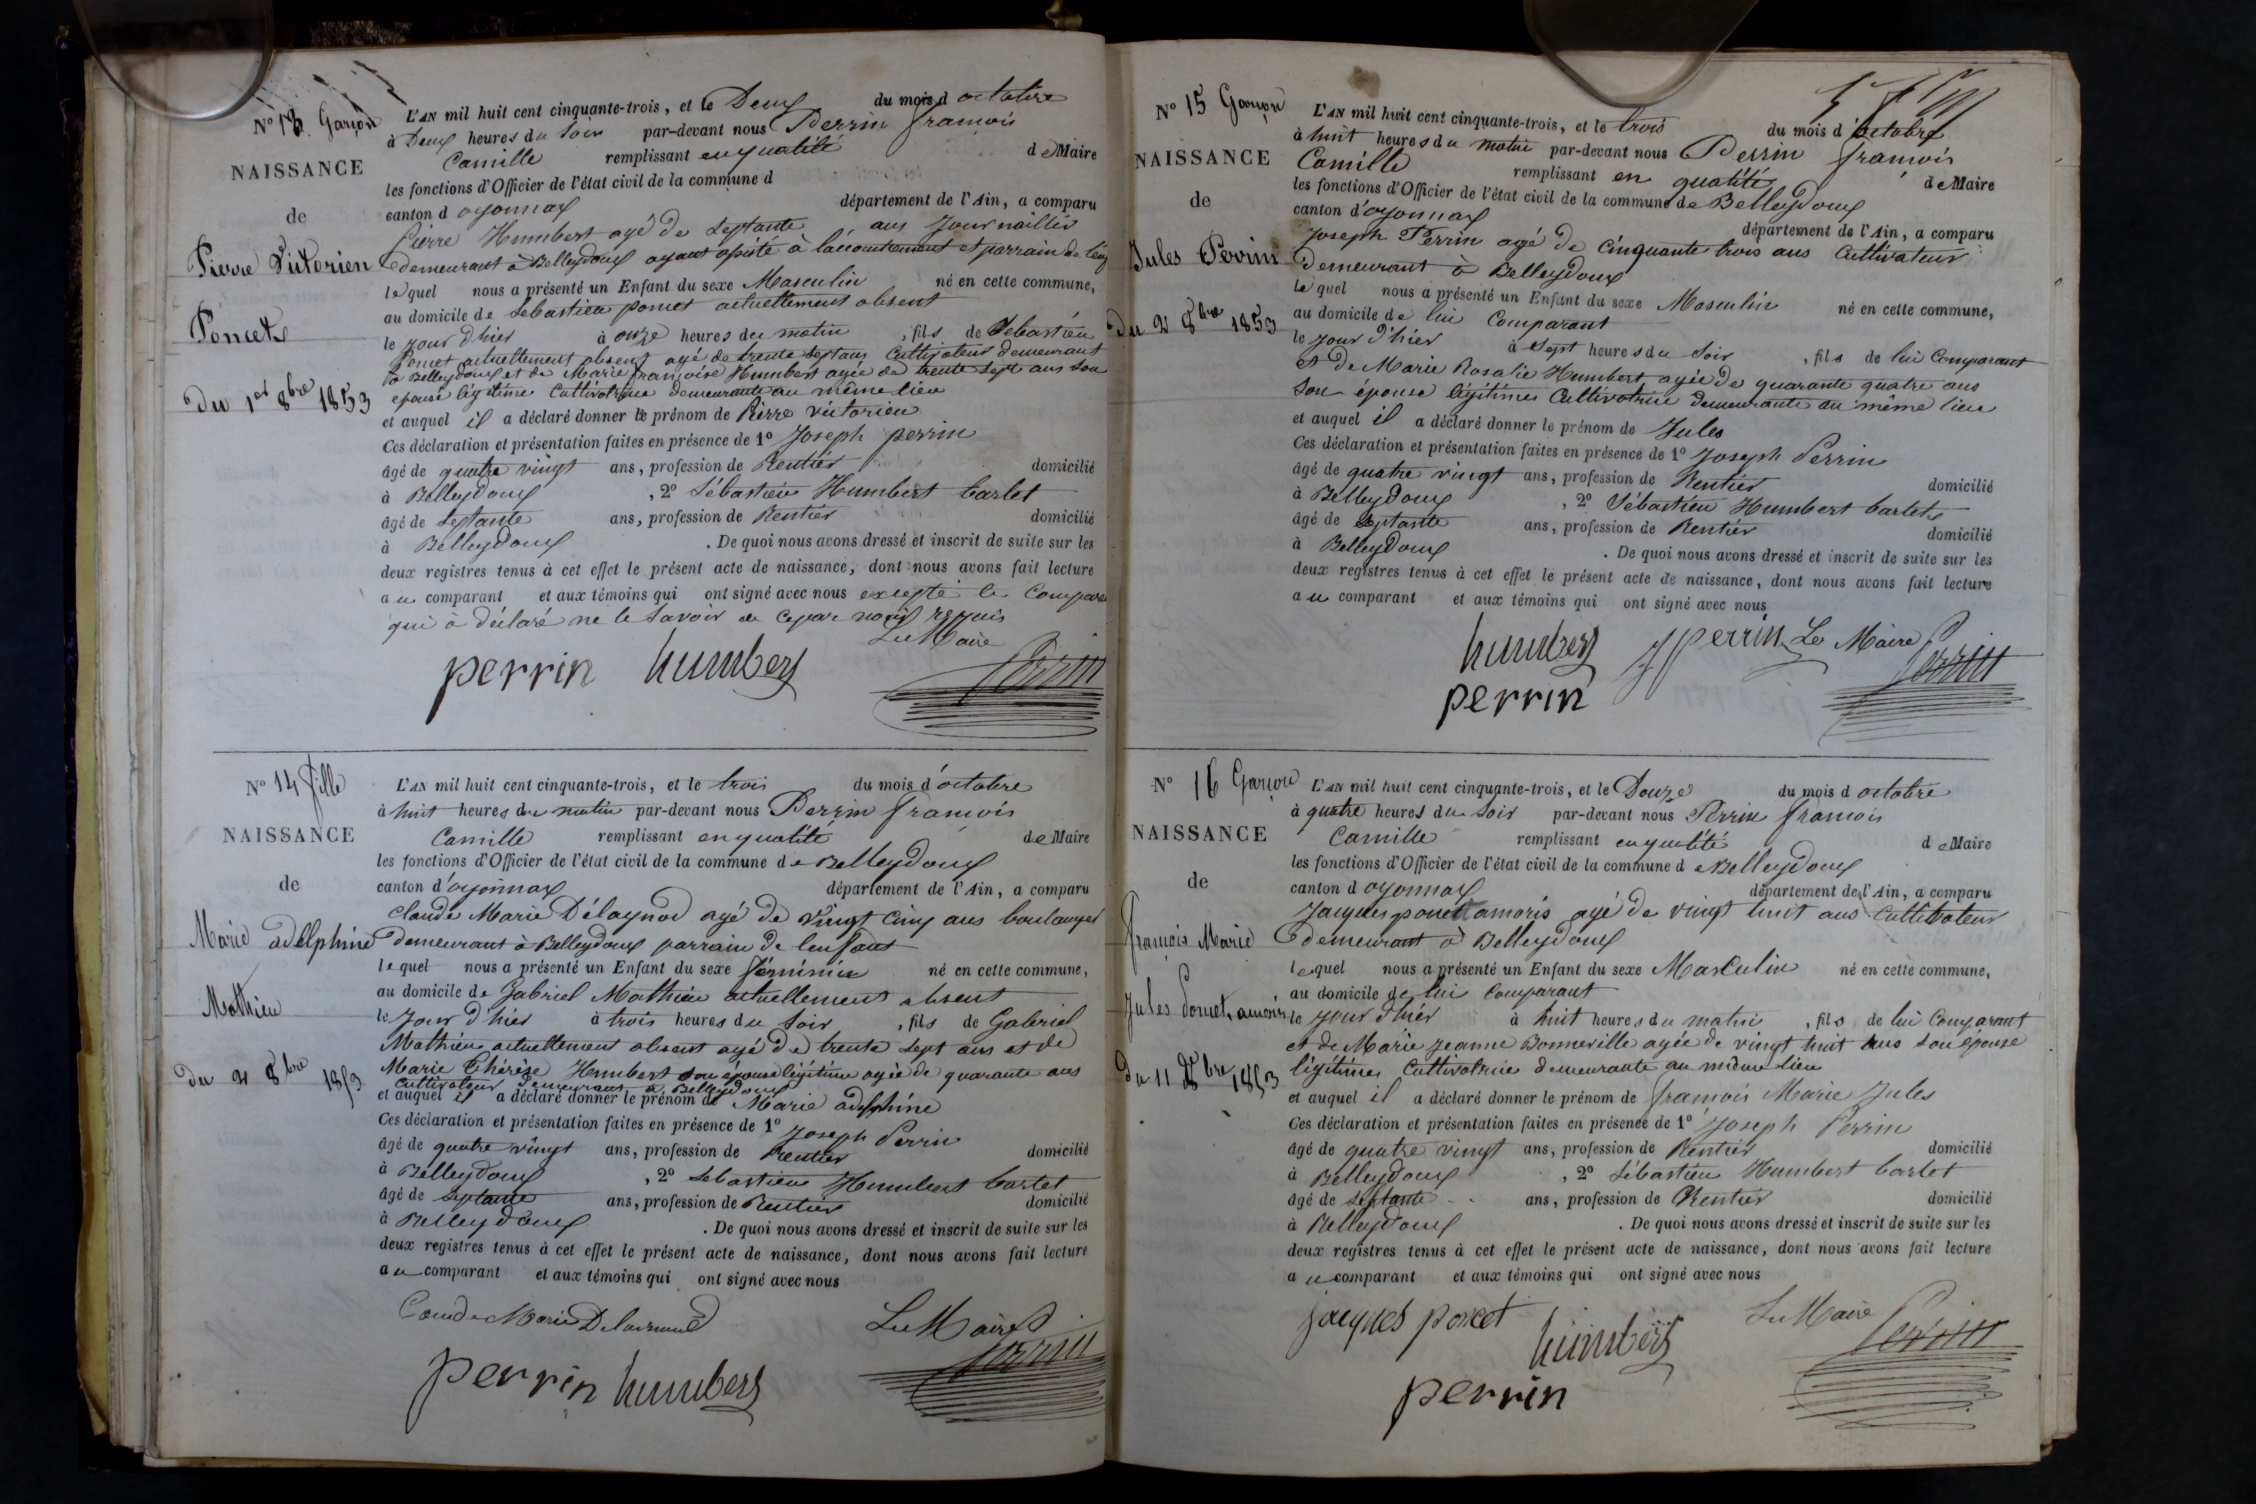 N° 13 Garçon
NAISSANCE
de
Pierre Victorien
Poncet
du 1er 8bre 1853
L'AN mil huit cent cinquante-trois, et le Deux du mois d octobre
à Deux heures du soir par-devant nous Perrin françois
Camille remplissant en qualité de Maire
les fonctions d'Officier de l'état civil de la commune d
canton d oyonnax département de l'Ain, a comparu
pierre Humbert agé de septante ans Journaillier
demeurant à Belleydoux ayant assisté à l'accouchement et parrain de
lequel nous a présenté un Enfant du sexe Masculin né en cette commune,
au domicile de Sebastien poncet actuellement absent
le jour d'hier à onze heures du matin, fils de Sebastien
Poncet actuellement absent agé de trente sept ans Cultivateur demeurant
à Belleydoux et de Marie françoise Humbert agée de trente sept ans son
epouse légitime Cultivatrice demeurante au même lieu
et auquel il a déclaré donner le prénom de Pierre victorien
Ces déclaration et présentation faites en présence de 1° Joseph perrin
âgé de quatre vingt ans, profession de Rentier domicilié
à Belleydoux, 2° Sébastien Humbert barlet
âgé de septante ans, profession de Rentier domicilié
à Belleydoux. De quoi nous avons dressé et inscrit de suite sur les
deux registres tenus à cet effet le présent acte de naissance, dont nous avons fait lecture
au comparant et aux témoins qui ont signé avec nous excepté le Compara
qui a déclaré ne le savoir de ce par nous requis
Le Maire
perrin humbert Perrin
N° 14 fille
NAISSANCE
de
Marie adelphine
Mathieu
du 2 8bre 1853
L'AN mil huit cent cinquante-trois, et le trois du mois d'octobre
à huit heures du matin par-devant nous Perrin françois
Camille remplissant en qualité de Maire
les fonctions d'Officier de l'état civil de la commune de Belleydoux
canton d'oyonnax département de l'Ain, a comparu
Claude Marie Délaynod agé de vingt cinq ans boulanger
demeurant à Belleydoux parrain de lenfant
lequel nous a présenté un Enfant du sexe féminin né en cette commune,
au domicile de Gabriel Mathieu actuellement absent
le jour d'hier à trois heures du soir, fils de Gabriel
Mathieu actuellement absent agé de trente sept ans et de
Marie Thérèse Humbert son épouse légitime agée de quarante ans
Cultivateur demeurant à Belleydoux
et auquel il a déclaré donner le prénom de Marie adelphine
Ces déclaration et présentation faites en présence de 1° Joseph Perrin
âgé de quatre vingt ans, profession de Rentier domicilié
à Belleydoux, 2° Sebastien Humbert barlet
âgé de septante ans, profession de Rentier domicilié
à Belleydoux. De quoi nous avons dressé et inscrit de suite sur les
deux registres tenus à cet effet le présent acte de naissance, dont nous avons fait lecture
au comparant et aux témoins qui ont signé avec nous
Marie Le Maire
perrin humbert Perrin
N° 15 Garçon
NAISSANCE
de
Jules Perrin
du 2 8bre 1853
L'AN mil huit cent cinquante-trois, et le trois du mois d'octobre
à huit heures du matin par-devant nous Perrin françois
Camille remplissant en qualité de Maire
les fonctions d'Officier de l'état civil de la commune de Belleydoux
canton d'oyonnax département de l'Ain, a comparu
Joseph Perrin agé de cinquante trois ans Cultivateur
demeurant à Belleydoux
lequel nous a présenté un Enfant du sexe Masculin né en cette commune,
au domicile de lui Comparant
le jour d'hier à sept heures du soir, fils de lui Comparant
et de Marie Rosalie Humbert agée de quarante quatre ans
son épouse légitime Cultivatrice demeurante au même lieu
et auquel il a déclaré donner le prénom de Jules
Ces déclaration et présentation faites en présence de 1° Joseph Perrin
âgé de quatre vingt ans, profession de Rentier domicilié
à Belleydoux, 2° Sébastien Humbert barlet
âgé de septante ans, profession de Rentier domicilié
à Belleydoux. De quoi nous avons dressé et inscrit de suite sur les
deux registres tenus à cet effet le présent acte de naissance, dont nous avons fait lecture
au comparant et aux témoins qui ont signé avec nous
humbert J Perrin Le Maire Perrin
perrin
N° 16 Garçon
NAISSANCE
de
françois Marie
Jules Poncet, amoris
du 11 8bre 1853
L'AN mil huit cent cinquante-trois, et le Douze du mois d octobre
à quatre heures du soir par-devant nous Perrin françois
Camille remplissant en qualité de Maire
les fonctions d'Officier de l'état civil de la commune de Belleydoux
canton d oyonnax département de l'Ain, a comparu
Jacques poncet amoris agé de vingt huit ans Cultivateur
demeurant à Belleydoux
lequel nous a présenté un Enfant du sexe Masculin né en cette commune,
au domicile de lui Comparant
le jour d'hiér à huit heures du matin, fils de lui Comparant
et de Marie jeanne Bonneville agée de vingt huit ans son épouse
légitime Cultivatrice demeurante au même lieu
et auquel il a déclaré donner le prénom de françois Marie Jules
Ces déclaration et présentation faites en présence de 1° Joseph Perrin
âgé de quatre vingt ans, profession de Rentier domicilié
à Belleydoux, 2° Sébastien Humbert barlet
âgé de septante ans, profession de Rentier domicilié
à Belleydoux. De quoi nous avons dressé et inscrit de suite sur les
deux registres tenus à cet effet le présent acte de naissance, dont nous avons fait lecture
au comparant et aux témoins qui ont signé avec nous
jacques poncet humbert Le Maire Perrin
perrin